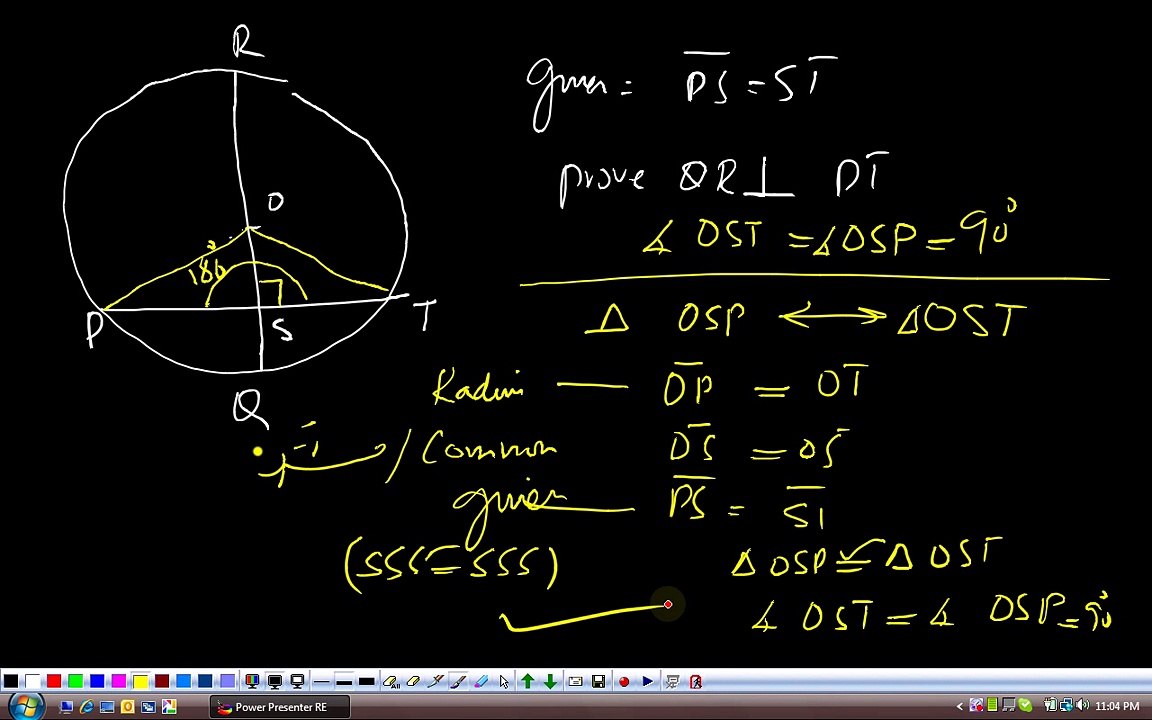 R
given: PS = ST
prove QR ⊥ PT
O
∡ OST = ∡OSP = 90°
180°
P
S
T
Δ OSP ↔ ΔOST
Q
Radius — OP = OT
Common OS = OS
given — PS = ST
(SSS = SSS)
Δ OSP ≅ Δ OST
∡ OST = ∡ OSP = 90°
All
Power Presenter RE
11:04 PM